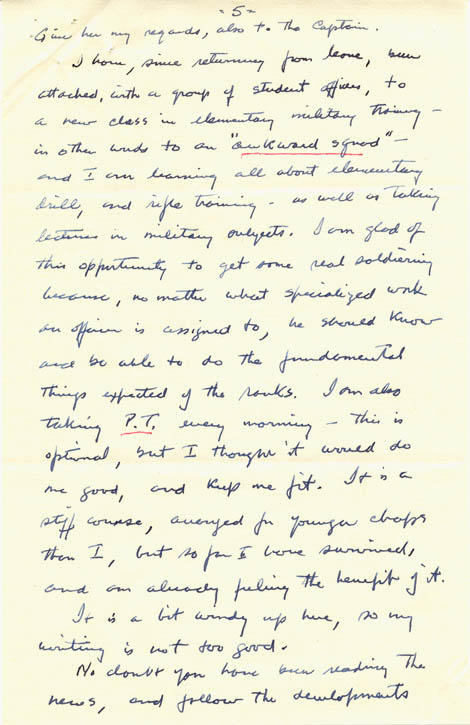 -5-
Give her my regards, also to the Captain.
I have, since returning from leave, been
attached, with a group of student officers, to
a new class in elementary military training -
in other words to an "awkward squad" -
and I am learning all about elementary
drill, and rifle training - as well as taking
lectures in military subjects. I am glad of
this opportunity to get some real soldiering
because, no matter what specialized work
an officer is assigned to, he should know
and be able to do the fundamental
things expected of the ranks. I am also
taking P.T. every morning - this is
optional, but I thought it would do
me good, and keep me fit. It is a
stiff course, arranged for younger chaps
than I, but so far I have survived,
and am already feeling the benefit of it.
It is a bit windy up here, so my
writing is not too good.
No doubt you have been reading the
news, and follow the developments